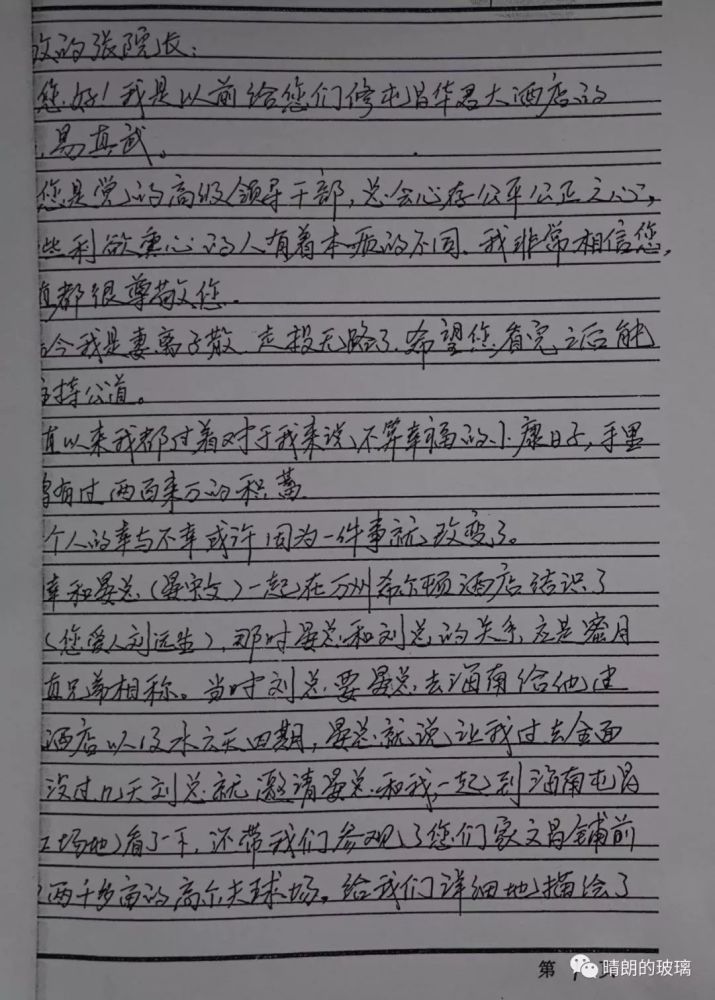 的张院长：
您好！我是以前给您们修屯昌华君大酒店的
易真武。
您是党的高级领导干部，总会心存公平公正之心，
些利欲熏心的人有着本质的不同、我非常相信您，
都很尊敬您．
今我是妻离子散．走投无路了，希望您看完之后能
主持公道。
直以来我都过着对于我来说，不算幸福的小康日子，手里
有过两百来万的积蓄
个人的幸与不幸或许因为一件事就改变了。
幸和晏总（晏宋文）一起在万州希尔顿酒店结识了
（您爱人刘远生），那时晏总和刘总的关系应是蜜月
直兄弟相称。当时刘总要晏总去海南给他建
酒店以及水云天四期，晏总就说让我过去全面
没过几天刘总就邀请晏总和我一起到海南屯昌
工场地看了一下，还带我们参观了您们家文昌铺前
两千多亩的高尔夫球场。给我们详细地描绘了
第 页
晴朗的玻璃